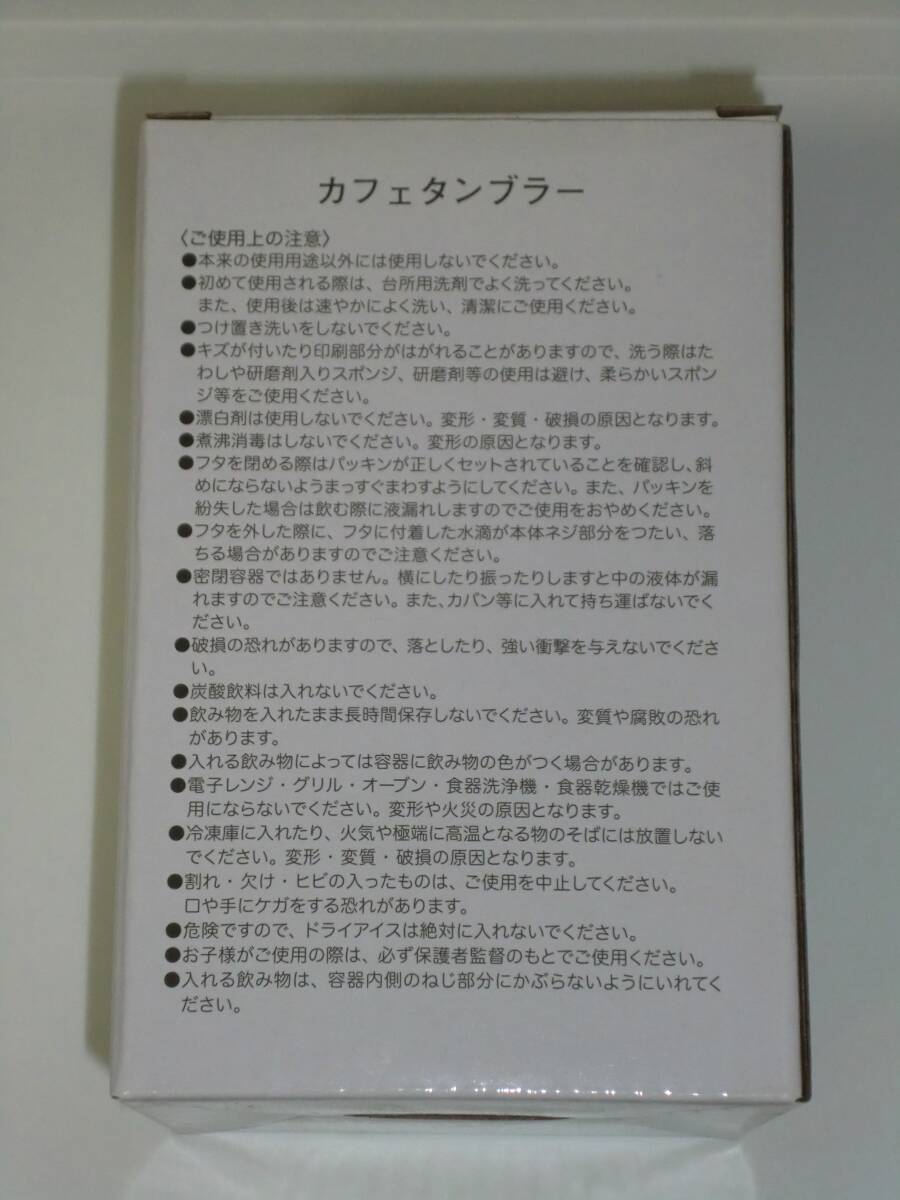 カフェタンブラー
〈ご使用上の注意〉
●本来の使用用途以外には使用しないでください。
●初めて使用される際は、台所用洗剤でよく洗ってください。
また、使用後は速やかによく洗い、清潔にご使用ください。
●つけ置き洗いをしないでください。
●キズが付いたり印刷部分がはがれることがありますので、洗う際はた
わしや研磨剤入りスポンジ、研磨剤等の使用は避け、柔らかいスポン
ジ等をご使用ください。
●漂白剤は使用しないでください。変形・変質・破損の原因となります。
●煮沸消毒はしないでください。変形の原因となります。
●フタを閉める際はパッキンが正しくセットされていることを確認し、斜
めにならないようまっすぐまわすようにしてください。また、パッキンを
紛失した場合は飲む際に液漏れしますのでご使用をおやめください。
●フタを外した際に、フタに付着した水滴が本体ネジ部分をつたい、落
ちる場合がありますのでご注意ください。
●密閉容器ではありません。横にしたり振ったりしますと中の液体が漏
れますのでご注意ください。また、カバン等に入れて持ち運ばないでく
ださい。
●破損の恐れがありますので、落としたり、強い衝撃を与えないでくださ
い。
●炭酸飲料は入れないでください。
●飲み物を入れたまま長時間保存しないでください。変質や腐敗の恐れ
があります。
●入れる飲み物によっては容器に飲み物の色がつく場合があります。
●電子レンジ・グリル・オーブン・食器洗浄機・食器乾燥機ではご使
用にならないでください。変形や火災の原因となります。
●冷凍庫に入れたり、火気や極端に高温となる物のそばには放置しない
でください。変形・変質・破損の原因となります。
●割れ・欠け・ヒビの入ったものは、ご使用を中止してください。
口や手にケガをする恐れがあります。
●危険ですので、ドライアイスは絶対に入れないでください。
●お子様がご使用の際は、必ず保護者監督のもとでご使用ください。
●入れる飲み物は、容器内側のねじ部分にかぶらないようにいれてく
ださい。